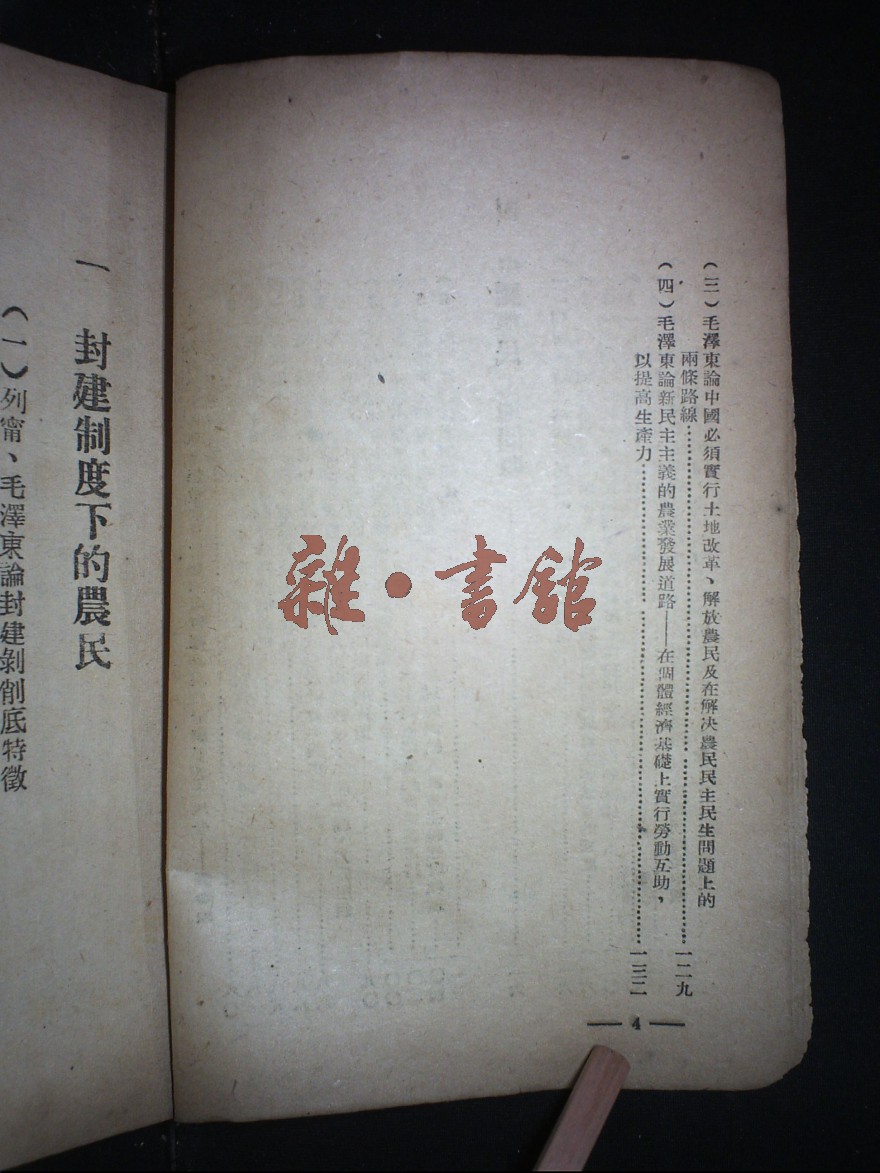 （三）毛澤東論中國必須實行土地改革、解放農民及在解决農民民主民生問題上的
兩條路線……一二九
（四）毛澤東論新民主主義的農業發展道路——在個體經濟基礎上實行勞動互助，
以提高生產力……一三二
— 4 —
一 封建制度下的農民
（一）列甯、毛澤東論封建剝削底特徵
雜·書館